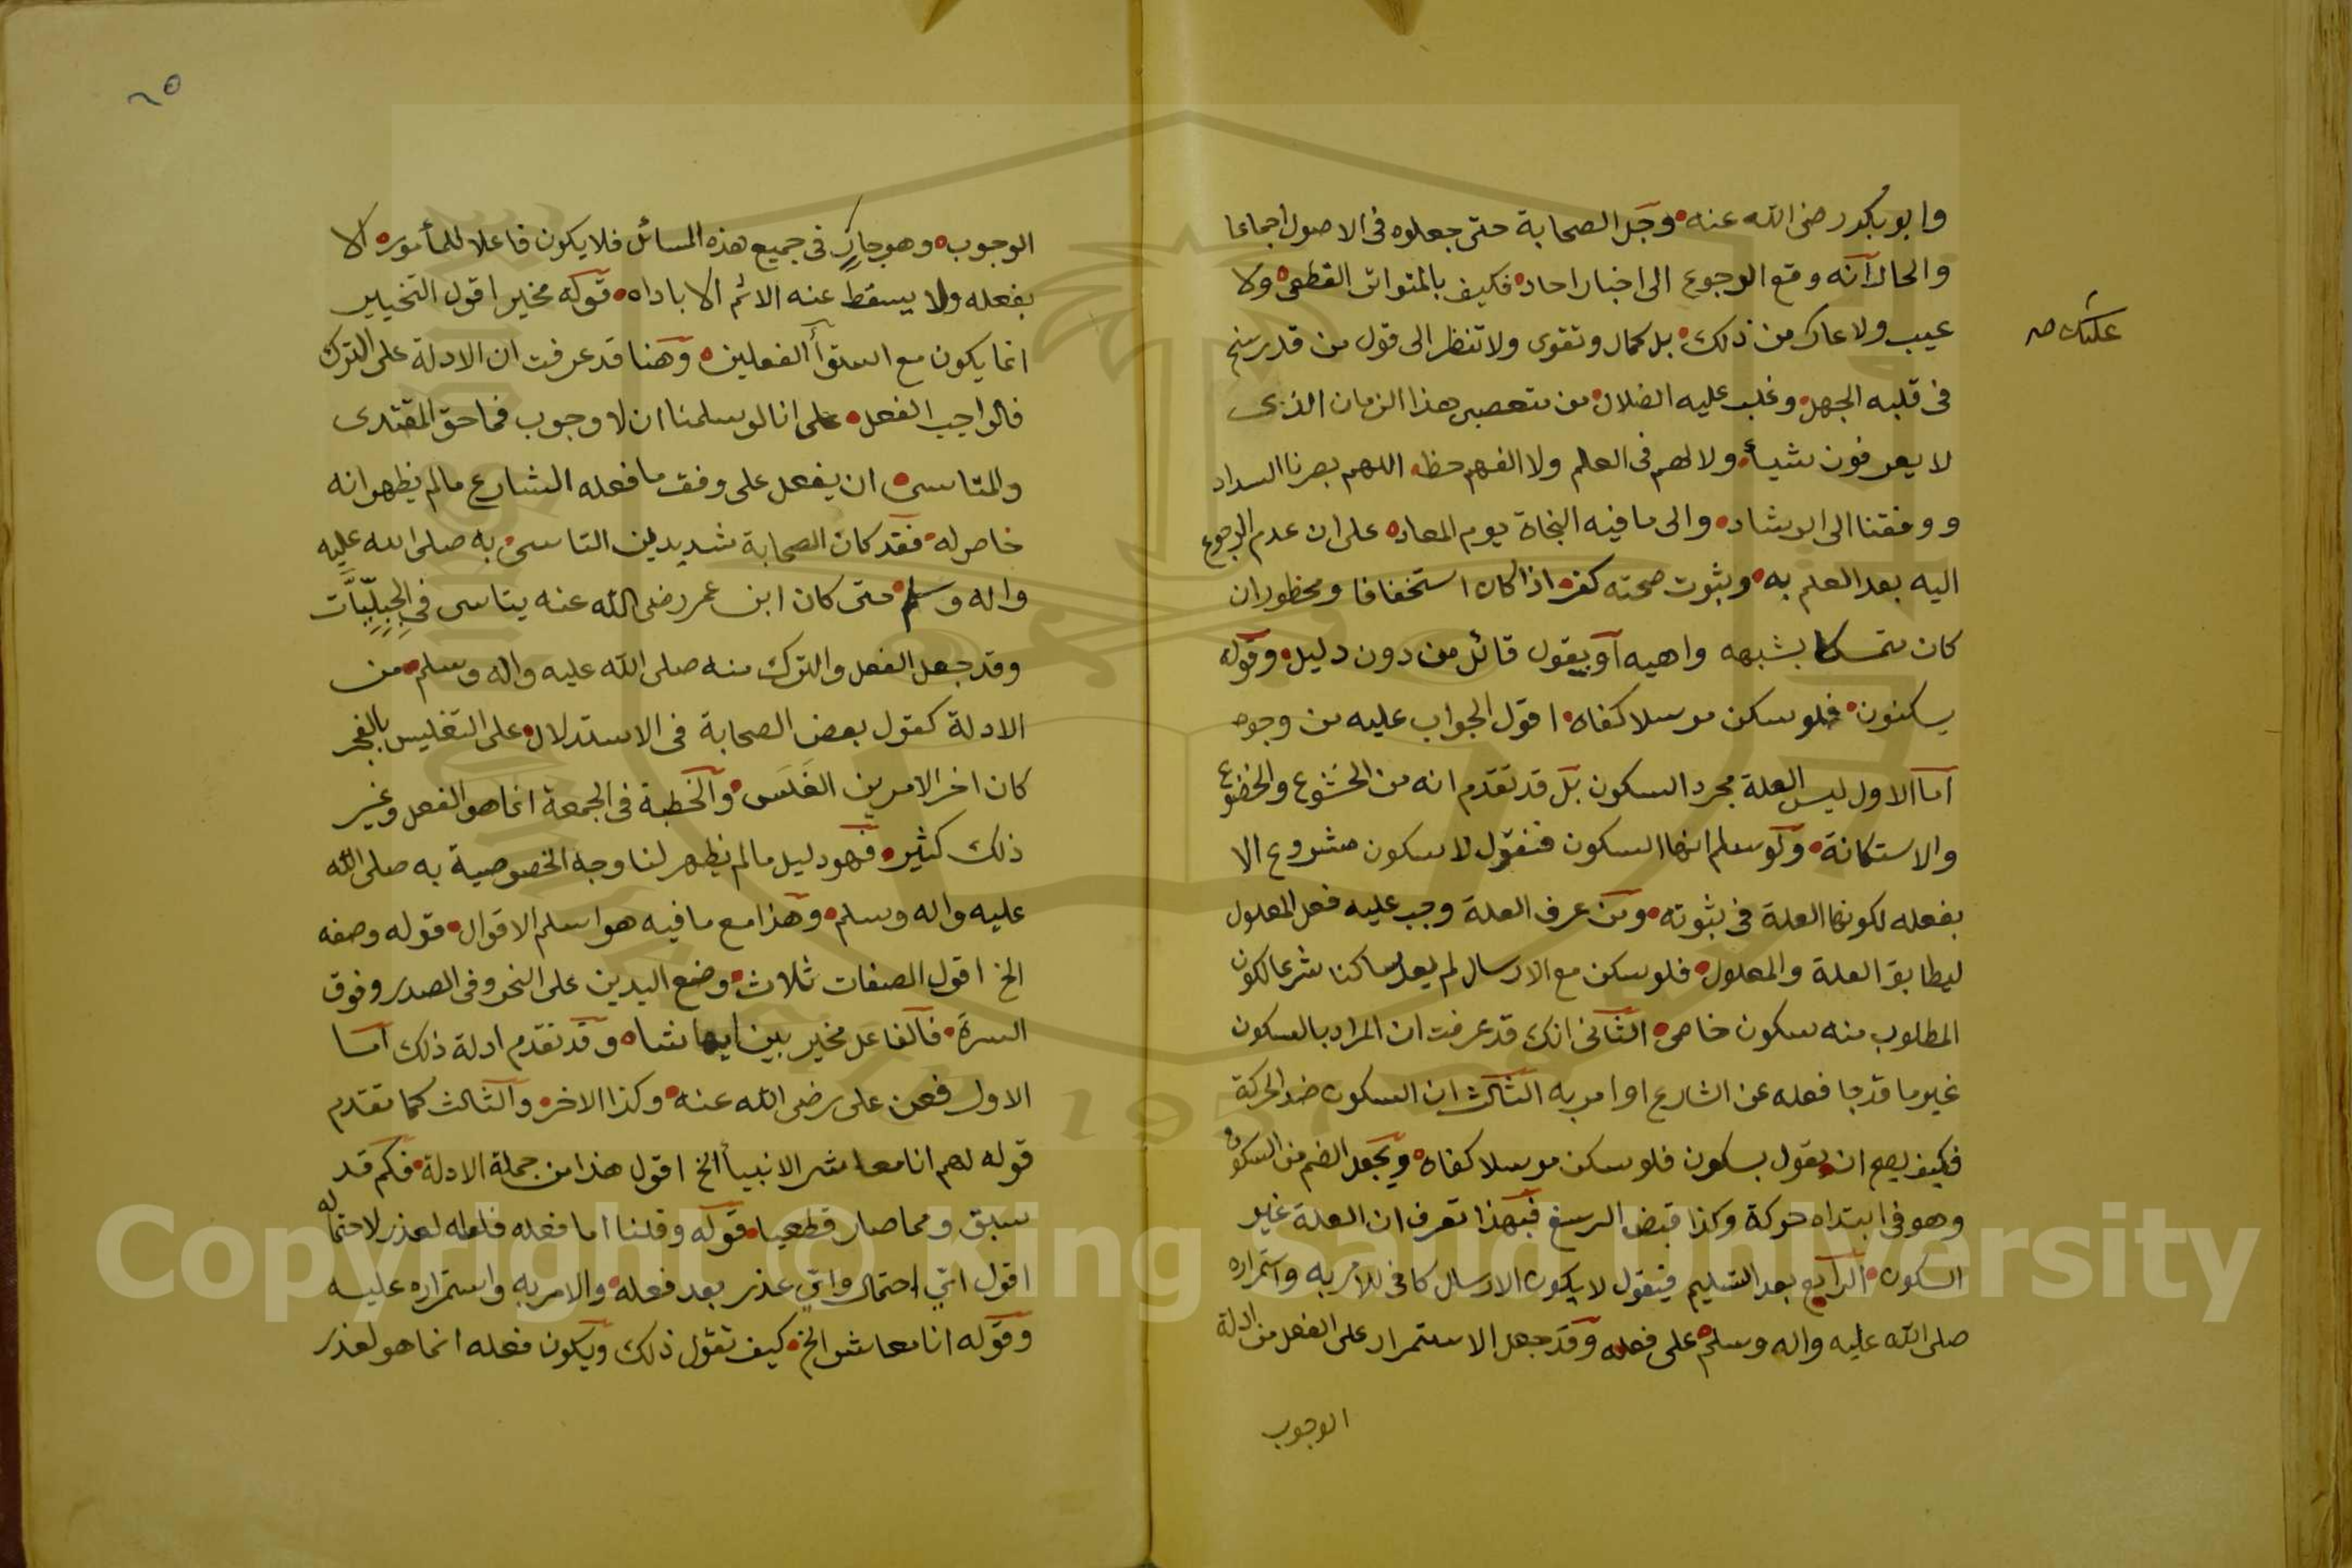 وابو بكر رضى الله عنه وجل الصحابة حتى جعلوه فى الاصول اجماعا
والحال انه وقع الرجوع الى اخبار احاد فكيف بالمتواتر القطعى ولا
عيب ولا عار من ذلك بل كمال وتقوى ولا تنظر الى قول من قد رسخ
عليك صح
فى قلبه الجهل وغلب عليه الضلال من متعصبى هذا الزمان الذى
لا يعرفون شيأ ولا لهم فى العلم ولا الفهم حظ اللهم بصرنا السداد
ووفقنا الى الرشاد والى ما فيه النجاة يوم المعاد على ان عدم الرجوع
اليه بعد العلم به وبثوت صحته كفر اذا كان استخفافا ومحظور ان
كان متمسكا بشبهه واهيه او بقول قائل من دون دليل وقوله
يسكنون فلو سكن مرسلا كفاه اقول الجواب عليه من وجوه
اما الاول ليس العلة مجرد السكون بل قد تقدم انه من الخشوع والخضوع
والاستكانة ولو سلم انها السكون فنقول لا سكون مشروع الا
بفعله لكونها العلة فى ثبوته ومن عرف العلة وجب عليه فعل المعلول
ليطابق العلة والمعلول فلو سكن مع الارسال لم يعد ساكنا شرعا لكون
المطلوب منه سكون خاص الثانى انك قد عرفت ان المراد بالسكون
غير ما قد جا فعله عن الشارع او امر به الثالث ان السكون ضد الحركة
فكيف يصح ان يقول بسكون فلو سكن مرسلا كفاه ويجعل الضم من السكون
وهو فى ابتداه حركة وكذا قبض الرسغ فبهذا تعرف ان العلة غير
السكون الرابع بعد التسليم فنقول لا يكون الارسال كافى للامر به واستمراره
صلى الله عليه واله وسلم على فعله وقد جعل الاستمرار على الفعل من ادلة
الوجوب
٢٥
الوجوب وهو جارٍ فى جميع هذه المسائل فلا يكون فاعلا للمأمور الا
بفعله ولا يسقط عنه الاثم الا باداه قوله مخير اقول التخيير
انما يكون مع استوأ الفعلين وهنا قد عرفت ان الادلة على الترك
فالواجب الفعل على انا لو سلمنا ان لا وجوب فما حق المقتدى
والمتاسى ان يفعل على وفق ما فعله الشارع مالم يظهر انه
خاص له فقد كان الصحابة شديدين التاسى به صلى الله عليه
واله وسلم حتى كان ابن عمر رضى الله عنه يتاسى فى الجِبِلِّيَّات
وقد جعل الفعل والترك منه صلى الله عليه واله وسلم من
الادلة كقول بعض الصحابة فى الاستدلال على التغليس بالفجر
كان اخر الامرين الغَلَس والخطبة فى الجمعة انما هو الفعل وغير
ذلك كثير فهو دليل مالم يظهر لنا وجه الخصوصية به صلى الله
عليه واله وسلم وهذا مع ما فيه هو اسلم الاقوال قوله وصفه
الخ اقول الصفات ثلاث وضع اليدين على النحر وفى الصدر وفوق
السرة فالفاعل مخير بين ايها شاه وقد تقدم ادلة ذلك اما
الاول فعن على رضى الله عنه وكذا الاخر والثالث كما تقدم
قوله لهم انا معاشر الانبيأ الخ اقول هذا من جملة الادلة فكم قد
سبق ومما صار قطعيا قوله وقلنا اما فعله فلعله لعذر لاحتماله
اقول اىّ احتمال واىّ عذر بعد فعله والامر به واستمراره عليه
وقوله انا معاشر الخ كيف تقول ذلك ويكون فعله انما هو لعذر
Copyright © King Saud University